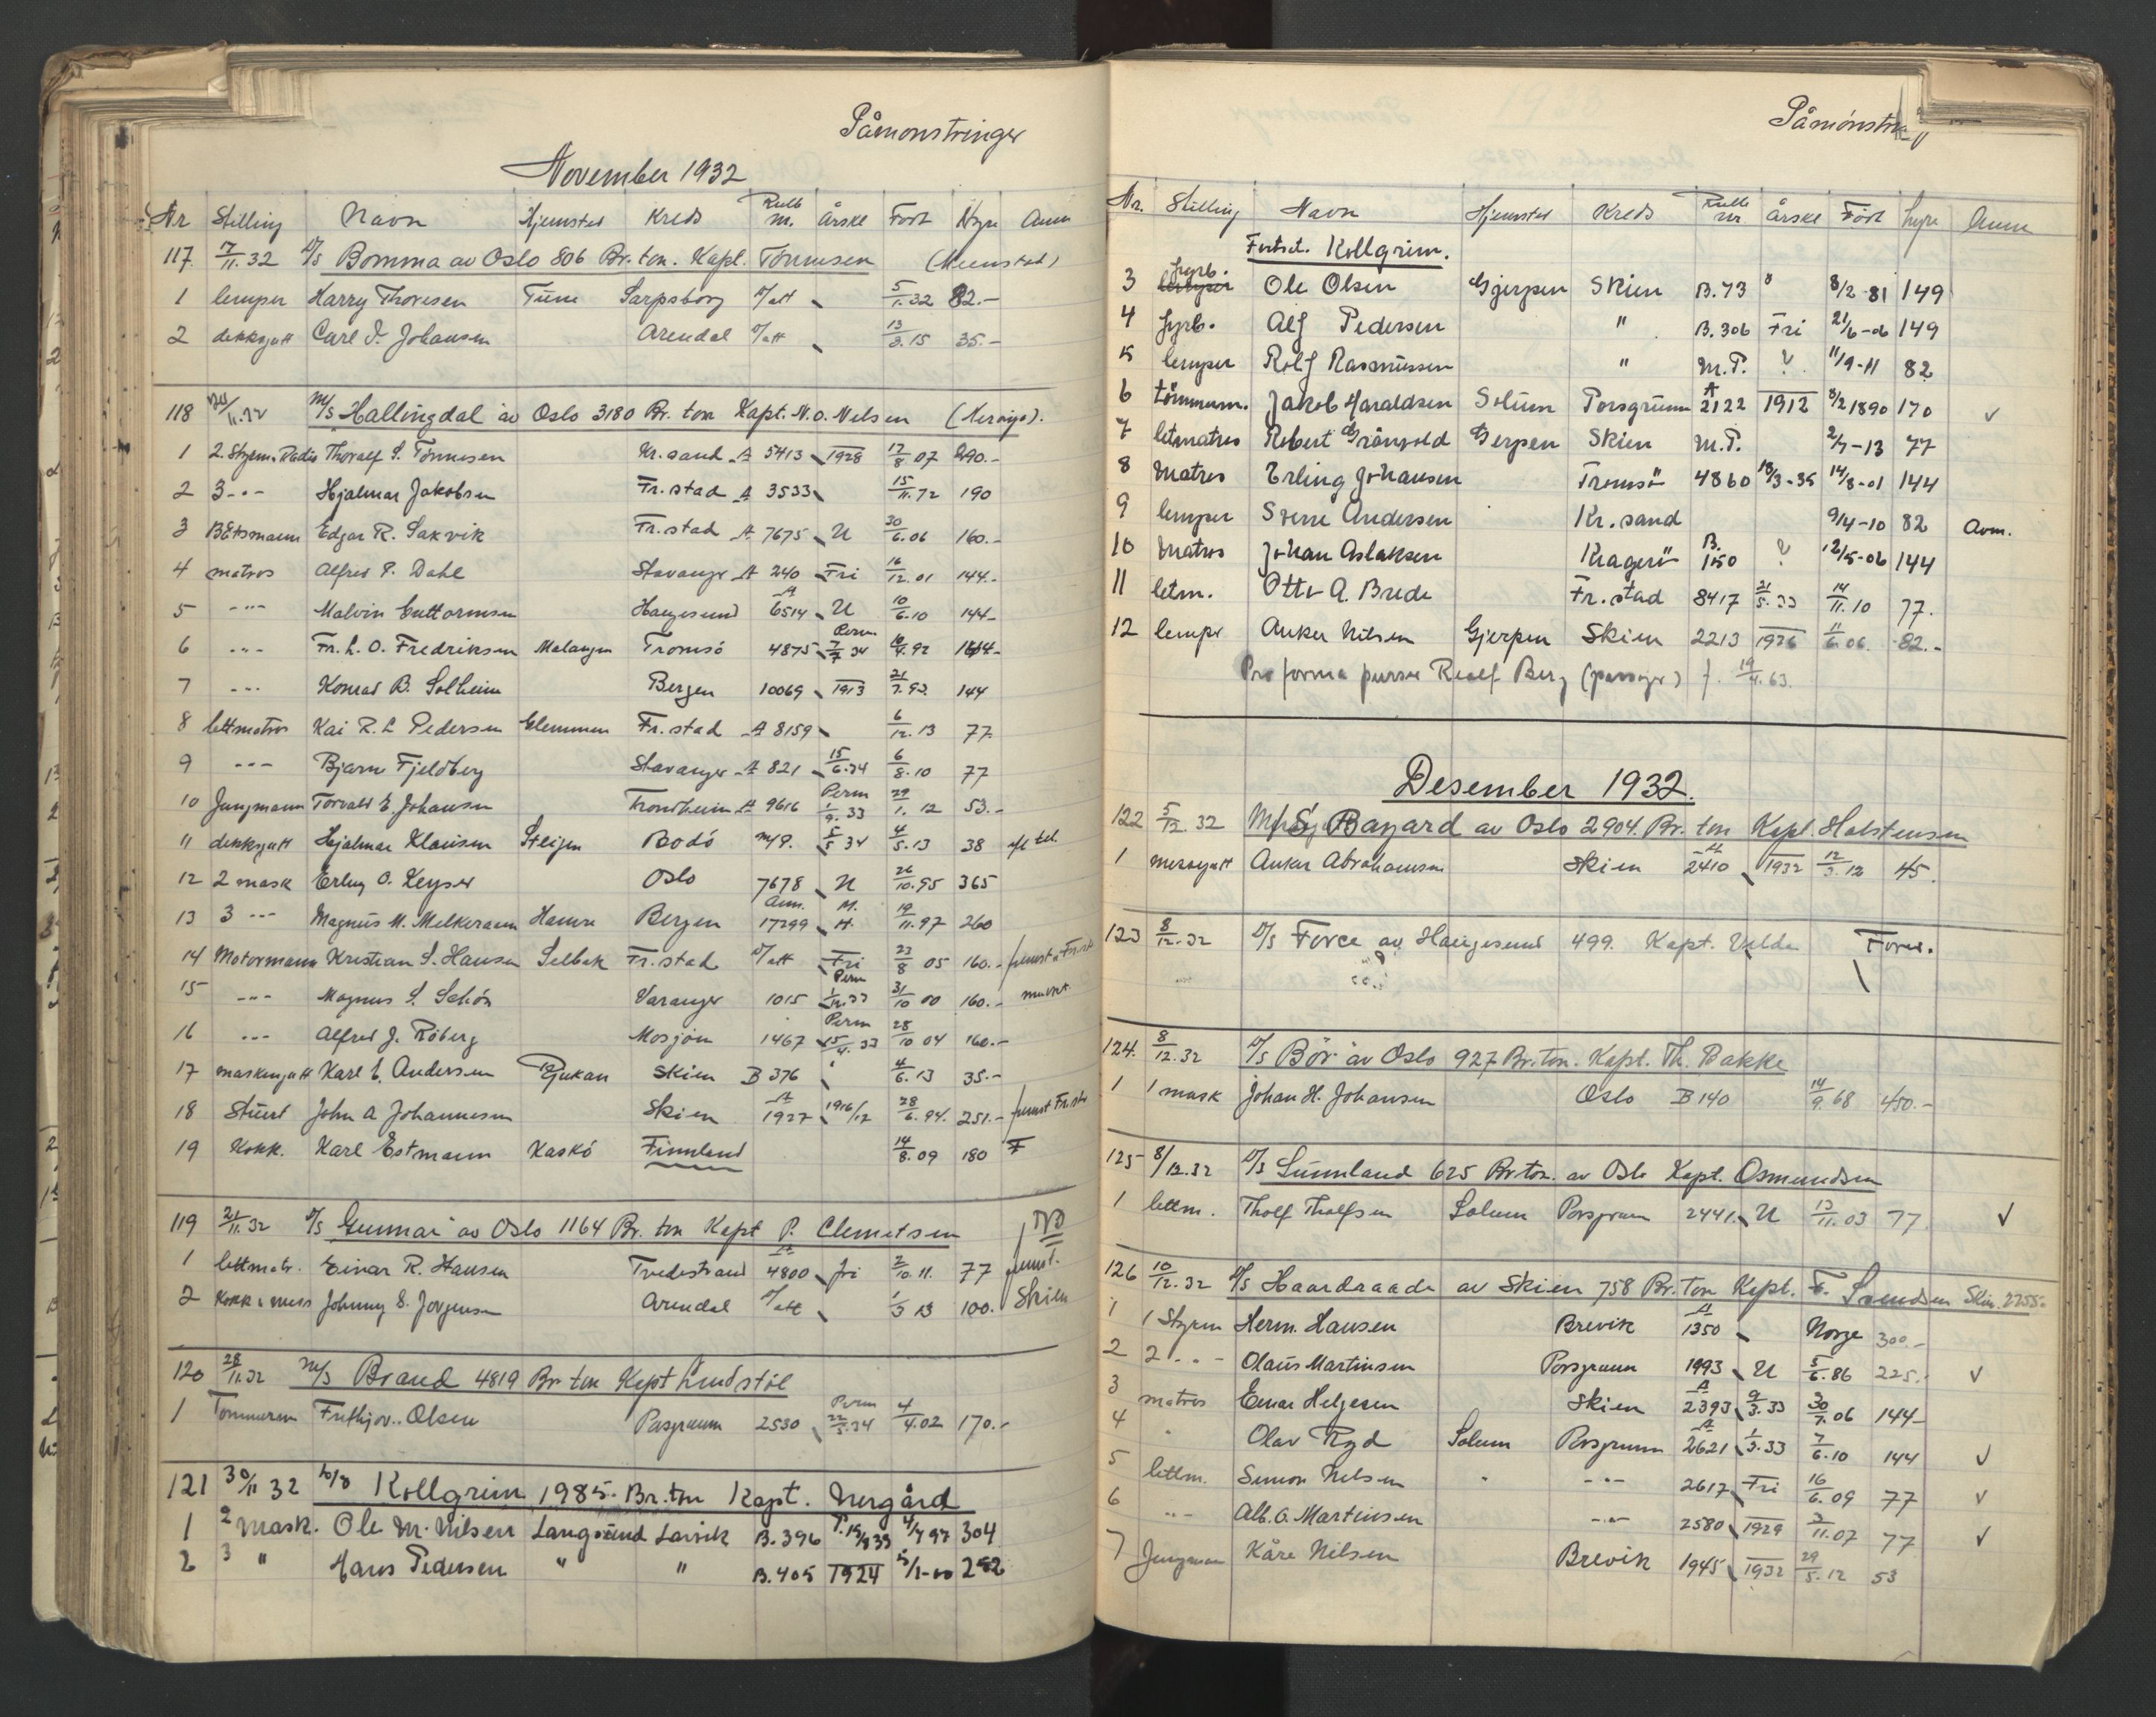 Påmonstringer
November 1932
Nr Stilling Navn Hjemsted Kreds Rulle nr. Årskl Født Hyre Anm
117 7/11.32 D/S Bomma av Oslo 806 Br. ton. Kapt. Tönnesen (Meenstad)
1 lemper Harry Thoresen Tune Sarpsborg S/att 5/1.32 82.-
2 dekksgutt Carl J. Johansen Arendal S/att 13/3.15 35.-
118 11.32 M/S Hallingdal av Oslo 3180 Br. ton Kapt. N.O. Nelsen
1 2.Styrm.Radio Thoralf S. Tönnesen Kr.sand A 5413 1928 17/8 07 290.-
2 3-"- Hjalmar Jakobsen Fr.stad A 3533 15/11.72 190
3 Båtsmann Edgar R. Sakvik Fr.stad A 7675 U 30/6.06 160.-
4 matros Alfred P. Dahl Stavanger A 240 Fri 16/12.01 144.-
5 -"- Malvin Guttormsen Haugesund A 6514 U 10/6.10 144-
6 -"- Fr. L. O. Fredriksen Malangen Tromsö 4875 Perm 7/7 34 4.92 144-
7 -"- Konrad B. Solheim Bergen 10069 1913 21/7.92 144
8 lettmatros Kai R. L Pedersen Glemmen Fr.stad A 8159 6/12.13 77.
9 -"- Bjarn Fjeldberg Stavanger A 821 15/6.34 6/8.10 77
10 Jungmann Torvald E Johansen Trondheim A 9616 Perm 1/9.33 29/1.12 53.-
11 dekksgutt Hjalmar Klausen Steigen Bodö 5/5 34 4/5.13 38
12 2 mask Erling O. Keyser Oslo 7678 U 26/10.95 365
13 3 -"- Magnus M. Melkeraaen Hamre Bergen Ann. 17299 M. H. 19/11.97 260
14 Motormann Kristian S. Hansen Selbak Fr.stad S/att Fri 23/8 05 160.-
15 -"- Magnus S. Schön Varanger 1015 Perm 1/12.33 31/10 00 160.-
16 -"- Alfred J. Röberg Mosjöen 1467 Perm 15/4.33 28/10 04 160.-
17 maskingutt Karl E. Andersen Rjukan Skien B 376 4/6.13 35.-
18 Stuert John A Johannesen Skien A 1927 1916/17 28/6.94. 251.-
19 Kokk. Karl Estmann Kaskö Finnland 14/8.09 180 F
119 21/11.32 D/S Gunnar av Oslo 1164 Br. ton Kapt P. Clemetsen
1 lettmatr. Einar R. Hansen Tvedestrand A 4800 fri 2/10 11. 77
2 Kokk & mess Johnny S. Jorgensen Arendal S/att 1/3 13 100. Skien
120 28/11.32 M/S Brand 4819 Br ton Kapt Lindstöl
1 Tömmerm Frithjov. Olsen Porsgrunn 2530 Perm 22/5.34 4/4.02 170.-
121 30/11 32 D/S Kollgrim 1985. Br.ton Kapt. Nergård
1 2 mask. Ole M. Nilsen Langesund Larvik B.396 4/7 97 304
2 3 " Hans Pedersen " " B.405 1924 5/1-00 252
Påmönstr
Nr. Stilling Navn Hjemsted Kreds Rulle nr Årskl Född hyre Anm
Fortset. Kollgrim.
3 fyrb. Ole Olsen Gjerpen Skien B.73 8/2-81 149
4 fyrb. Alf Pedersen " B.306 Fri 21/6-06 149
5 lemper Rolf Rasmussen " M.P. ? 11/9-11 82
6 tömmerm. Jakob Haraldsen Solum Porsgrunn A 2122 1912 8/2 1890 170 ✓
7 letmatros Robert Grönvold Gjerpen Skien M.P. 2/7-13 77
8 Matros Erling Johansen Tromsö 4860 18/3-35 14/8-01 144
9 lemper Sverre Andersen Kr.sand 9/4-10 82 Avm.
10 Matros Johan Aslaksen Kragerö B. 150 ? 12/5-06 144
11 letm. Otto A. Brede Fr.stad 8417 21/5.33 14/11.10 77.
12 lemper Anker Nilsen Gjerpen Skien 2213 1926 11/6.06. 82.-
Pro forma purser Realf Berg (passager) f. 19/4.63.
Desember 1932.
122 5/12.32 M/S Bayard av Oslo 2904. Br. ton Kapt. Holstensen
1 messegutt Anker Abrahamsen Skien A 2410 1932 12/3.12 45.
123 8/12.32 D/S Force av Haugesund 499. Kapt. Velde Forus.
124. 8/12.32 D/S Bör av Oslo 927 Br.ton. Kapt. Th. Bakke
1 1 mask Johan H. Johansen Oslo B 140 14/9.68 450.-
125 8/12.32 D/S Sunnland 625 Br.ton. av Oslo Kapt. Osmundsen
1 lettm. Tholf Tholfsen Solum Porsgrunn 2441. U 13/11.03 77. ✓
126 10/12.32 D/S Haardraade av Skien 758 Br. ton Kapt. F. Svendsen
1 1 Styrm Herm. Hansen Brevik A 1350 Norge 300.-
2 2 -"- Olaus Martinsen Porsgrunn 1993 U 5/6.86 225. ✓
3 matros Einar Helgesen Skien A 2393 9/3.33 30/7.06 144-
4 " Olav Ryd Solum Porsgrunn A 2621 1/3.33 7/6.10 144 ✓
5 lettm. Simon Nilsen " -"- 2617 Fri 16/6.09 77 ✓
6 -"- Alb. O. Martinsen -"- 2580 1929 3/11.07 77 ✓
7 Jungmann Kåre Nilsen Brevik 1945 1932 29/5.12 53